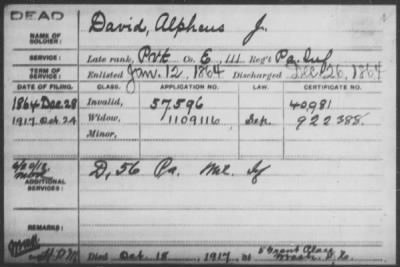 DEAD
NAME OF SOLDIER: David, Alpheus J.
SERVICE: Late rank, Pvt Co. E, 111 Reg't Pa. Inf
TERM OF SERVICE: Enlisted Jan. 12, 1864 Discharged Dec. 26, 1864
DATE OF FILING. CLASS. APPLICATION NO. LAW. CERTIFICATE NO.
1864 Dec. 28 Invalid, 57596 40981
1917 Oct 24 Widow, 1109116 922388.
Minor,
ADDITIONAL SERVICES: D, 56 Pa. Mil. Inf
REMARKS:
Died Oct. 18, 1917, at 5 Grant Place
Wash. D. C.